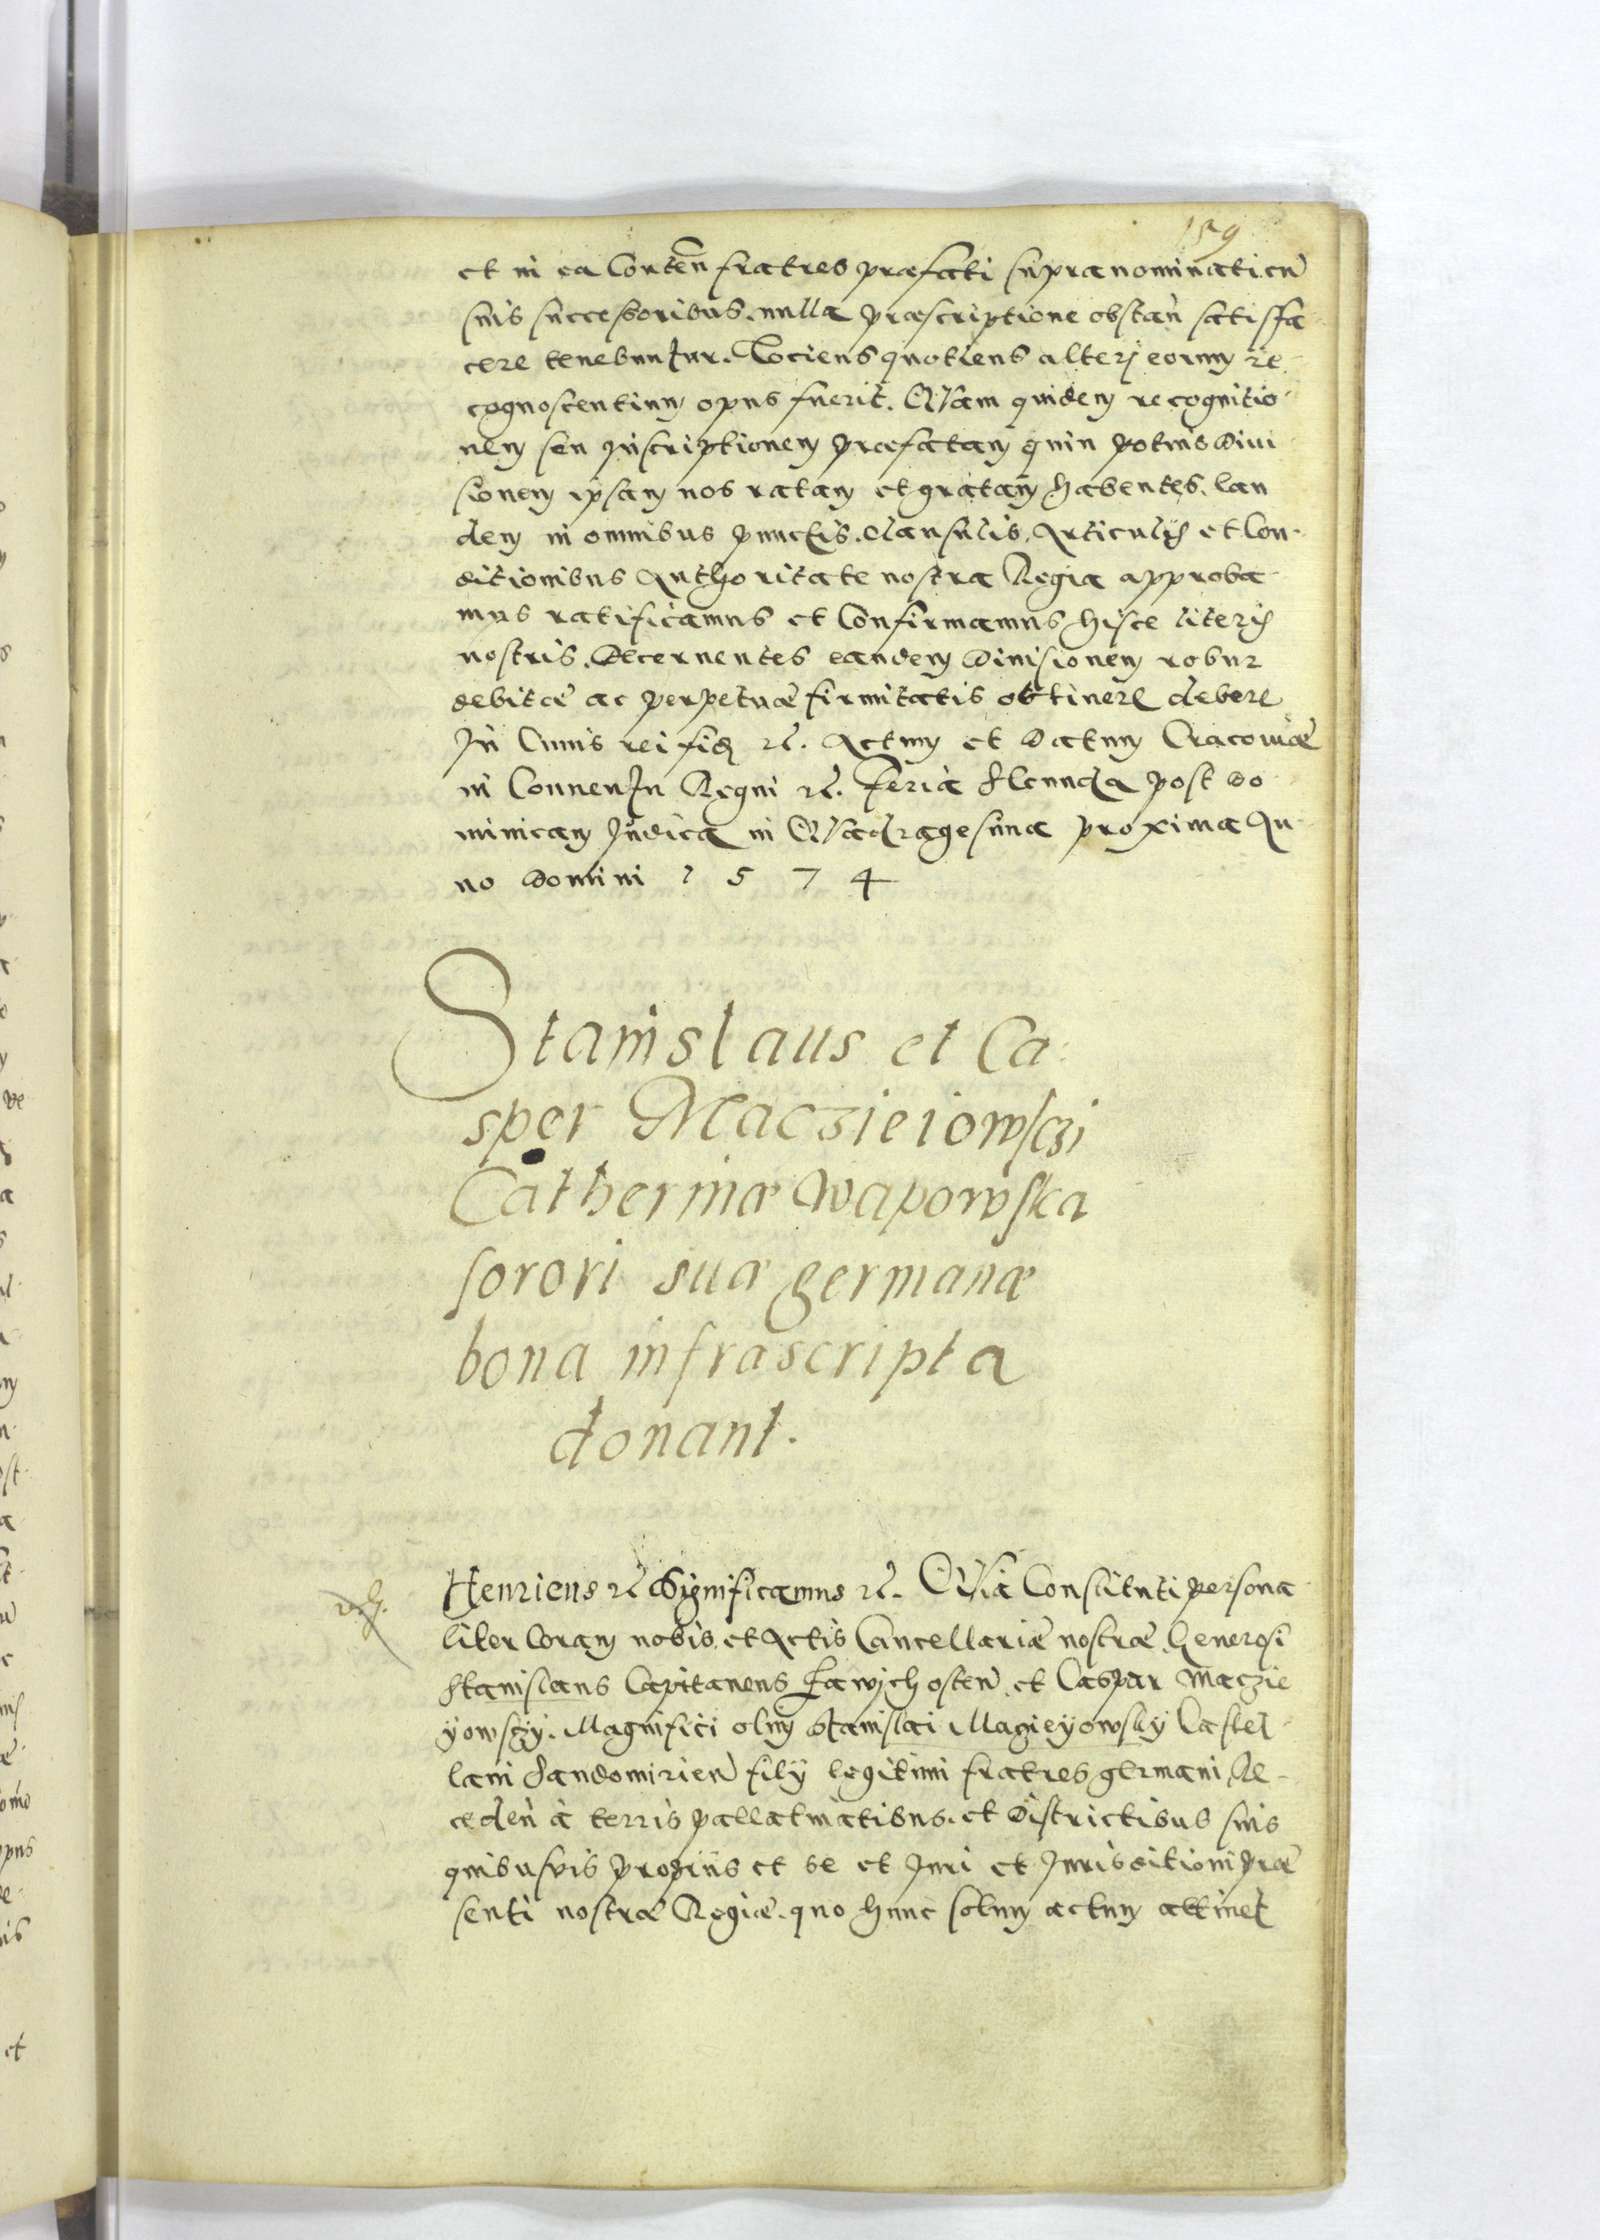 159
et in ea Conten fratres præfati supranominati cu
suis successoribus, nulla præscriptione obstan satisfa
cere tenebuntur. Tociens quotiens alteri eorum re
cognoscentium opus fuerit. Quam quidem recognitio
nem seu Inscriptionem præfatam quin potius Divi
sionem ipsam nos ratam et gratam habentes, Ean
dem in omnibus punctis, clausulis, Articulis et Con
ditionibus Authoritate nostra Regia approba
mus ratificamus et Confirmamus hisce literis
nostris. Decernentes eandem Divisionem robur
debitæ ac perpetuæ firmitatis obtinere debere
In Cuius rei fid etc. Actum et Datum Cracoviæ
in Conventu Regni etc. Feria Secunda post Do
minicam Iudica in Quadragesima proxima An
no Domini 1574
Stanislaus et Ca
sper Maczieiowsczi
Catherinæ Wapowska
sorori suæ germanæ
bona infrascripta
donant.
Henricus etc Significamus etc. Quia Constituti persona
liter Coram nobis, et Actis Cancellariæ nostræ, Generosi
Stanislaus Capitaneus Zawychosten, et Caspar Maczie
yowsczy, Magnifici olim Stanislai Macieyowsky Castel
lani Sandomirien filii legitimi fratres germani, Re
ceden à terris pallatinatibus, et Districtibus suis
quibusvis propriis et se et Iuri et Iurisditioni præ
senti nostræ Regiæ, quo hunc solum actum attinet